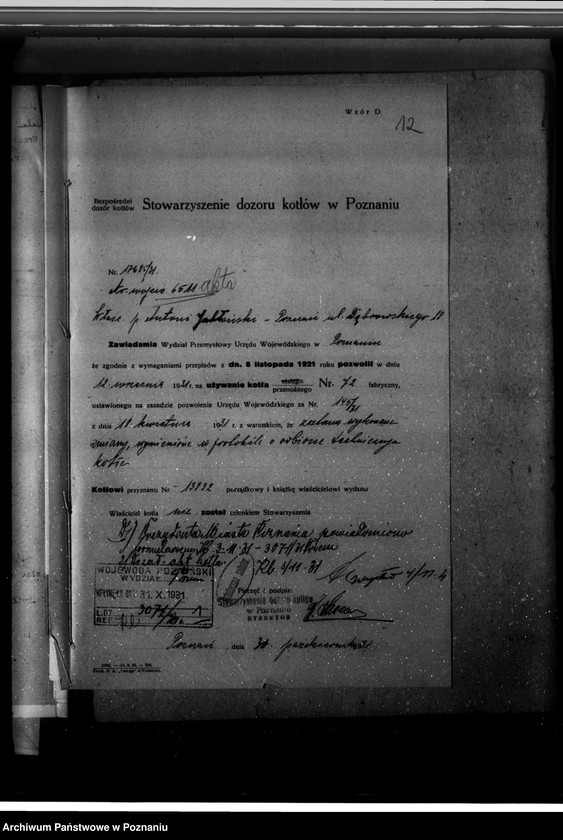 Wzór D.
12
Bezpośredni
dozór kotłów
Stowarzyszenie dozoru kotłów w Poznaniu
Nr. 17685/31
Nr. wojew. 6511 akta
Właśc. p. Antoni Jabłoński - Poznań ul. Dąbrowskiego 18
Zawiadamia Wydział Przemysłowy Urzędu Wojewódzkiego w Poznaniu
że zgodnie z wymaganiami przepisów z dn. 8 listopada 1921 roku pozwolił w dniu
12 września 1931 r. na używanie kotła stałego
przewoźnego Nr. 72 fabryczny,
ustawionego na zasadzie pozwolenia Urzędu Wojewódzkiego za Nr. 145/31
z dnia 18 kwietnia 1931 r. z warunkiem, że zostaną wykonane
zmiany, wymienione w protokóle o odbiorze
kotła
Kotłowi przyznano Nr 13832 porządkowy i książkę właścicielowi wydano
Właściciel kotła nie został członkiem Stowarzyszenia
1) Prezydenta Miasta Poznania powiadomiono
formularzem 3-11-31 - 3071/31
2) akt kotła
Rb 3/11-31
WOJEWODA POZNAŃSKI
WYDZIAŁ
31. X. 1931
L.DZ. 3071/1
REF.
Pieczęć i podpis:
Stowarzyszenie dozoru kotłów
w Poznaniu
DYREKTOR
Poznań, dnia 30 października 31